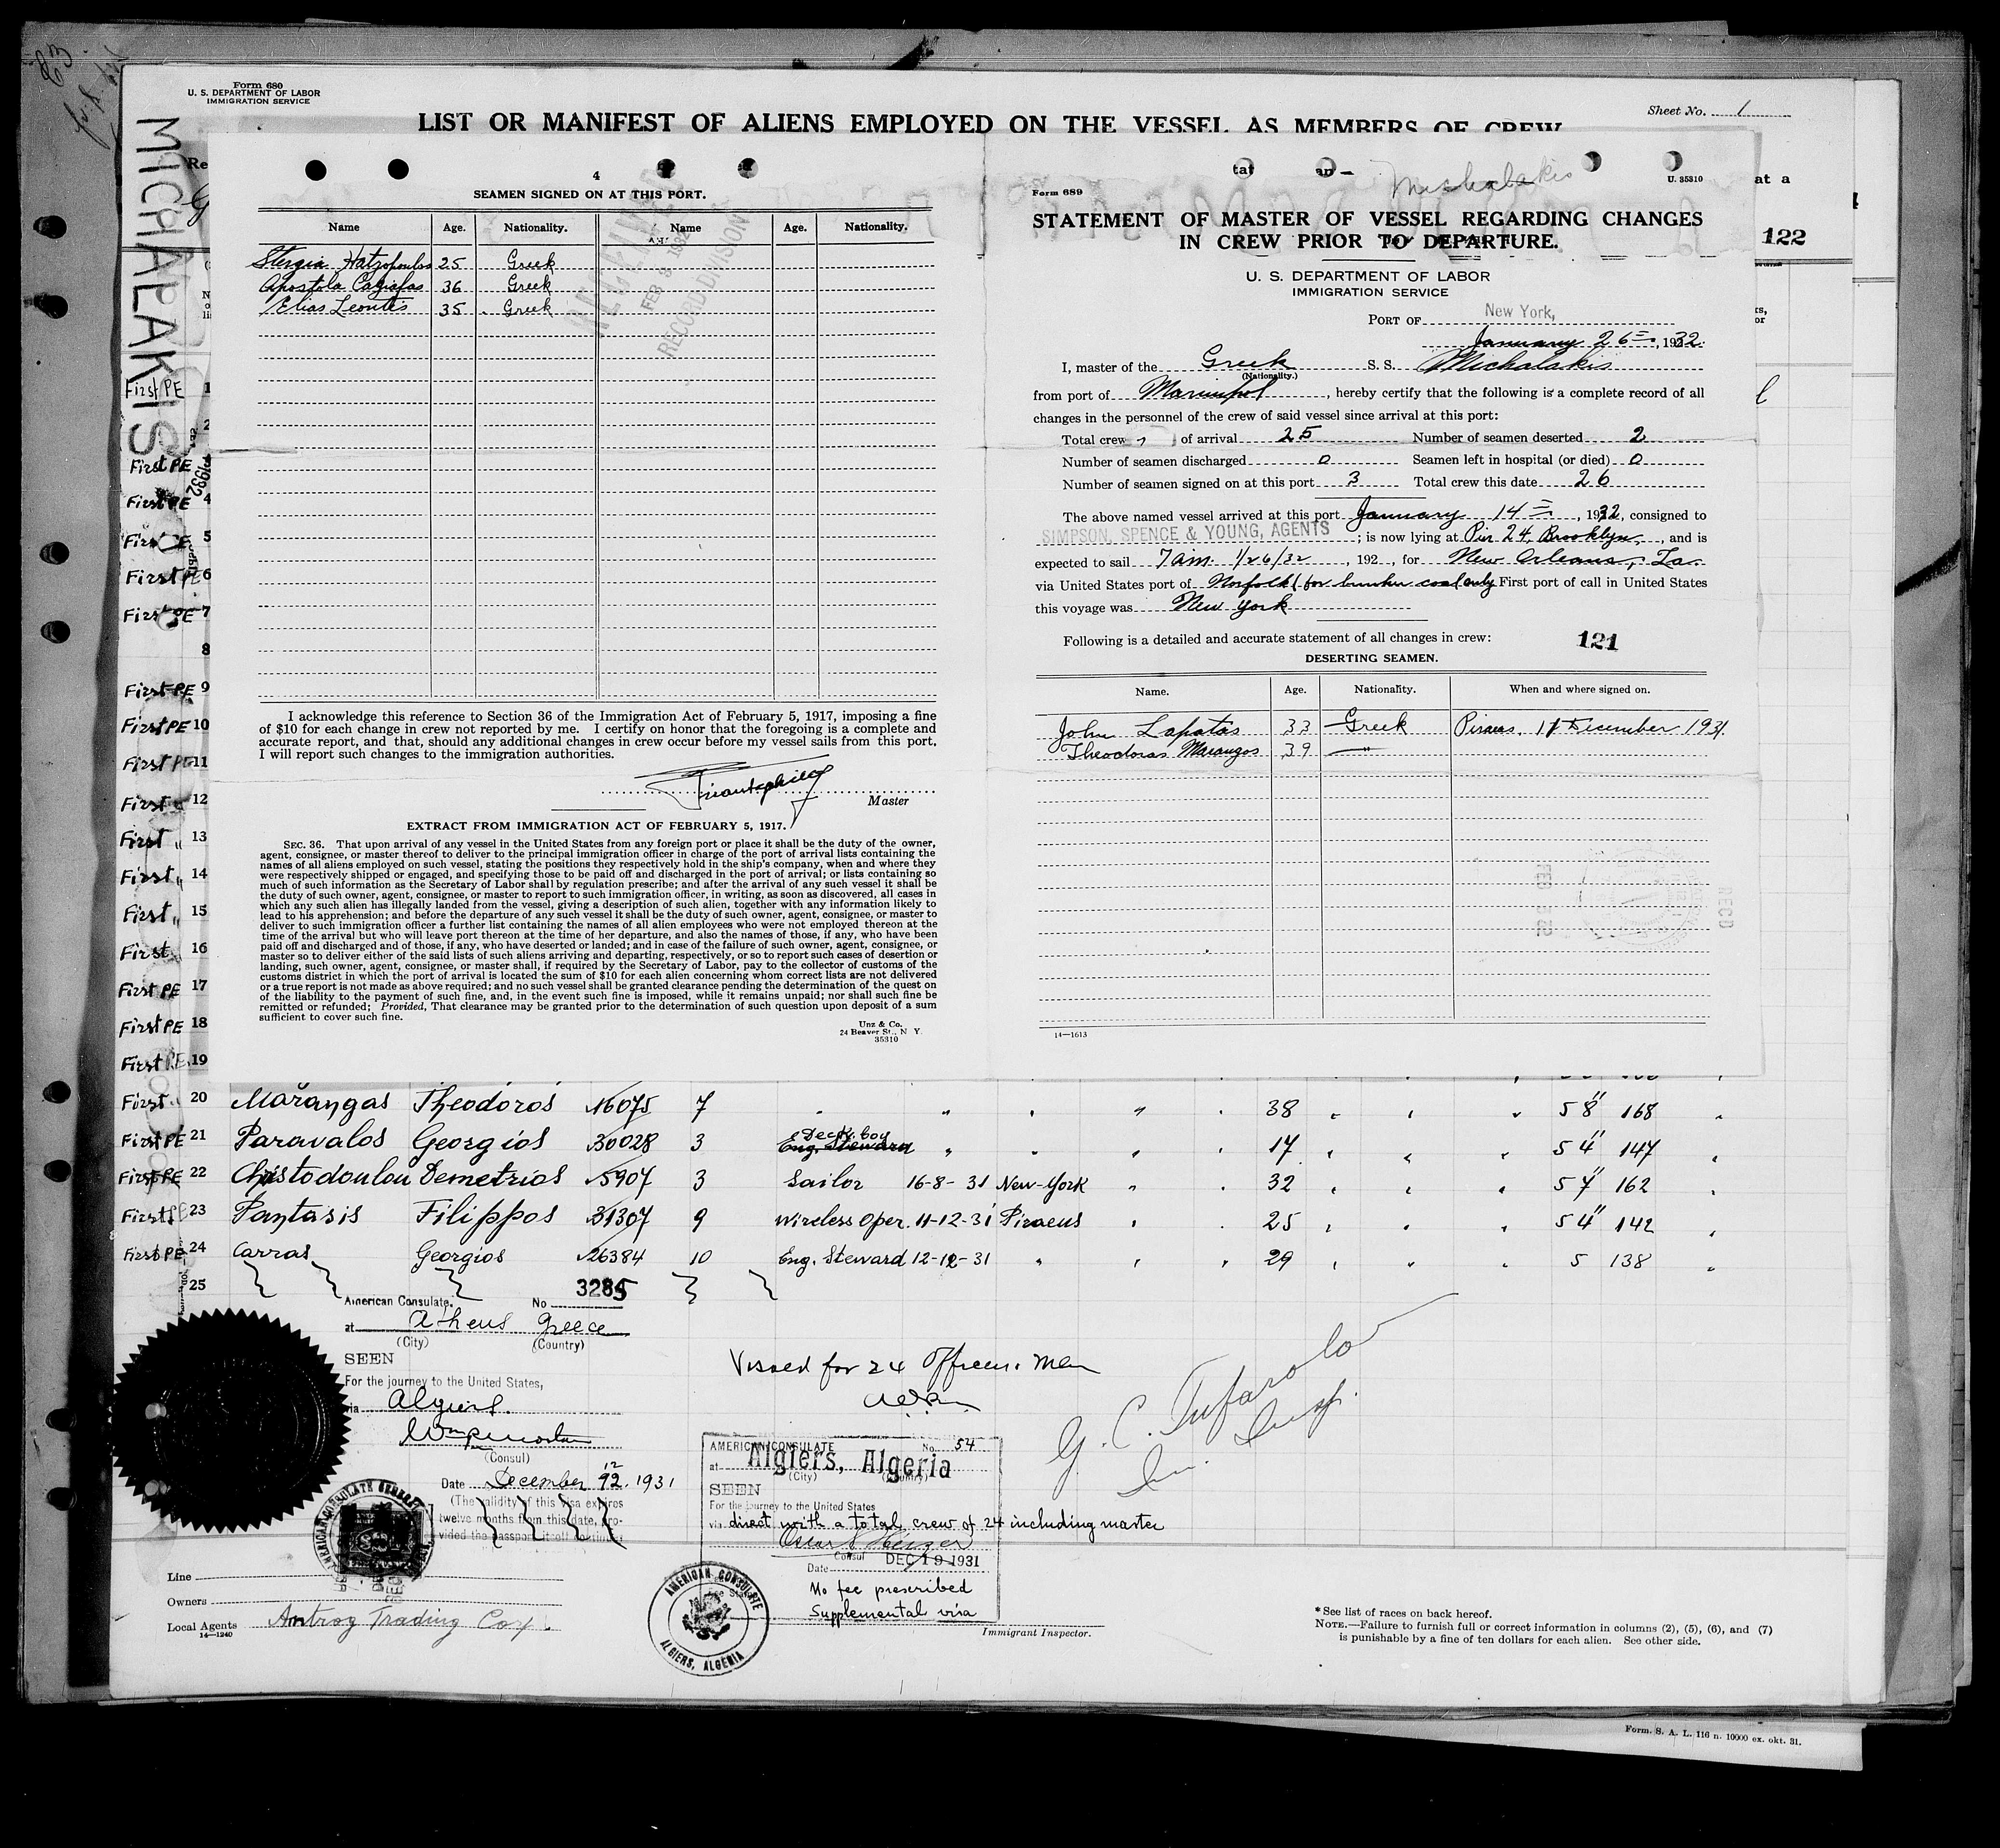 Form 680
U. S. DEPARTMENT OF LABOR
IMMIGRATION SERVICE
Sheet No. 1
LIST OR MANIFEST OF ALIENS EMPLOYED ON THE VESSEL AS MEMBERS OF CREW
MICHALAKIS
at a
122
4
SEAMEN SIGNED ON AT THIS PORT.
Name Age. Nationality. Name Age. Nationality.
Stergia Hatzopoulos 25 Greek
Apostola Cagiafas 36 Greek
Elias Leontis 35 Greek
FEB 3 1932
RECORD DIVISION
I acknowledge this reference to Section 36 of the Immigration Act of February 5, 1917, imposing a fine
of $10 for each change in crew not reported by me. I certify on honor that the foregoing is a complete and
accurate report, and that, should any additional changes in crew occur before my vessel sails from this port,
I will report such changes to the immigration authorities.
Master
EXTRACT FROM IMMIGRATION ACT OF FEBRUARY 5, 1917.
SEC. 36. That upon arrival of any vessel in the United States from any foreign port or place it shall be the duty of the owner,
agent, consignee, or master thereof to deliver to the principal immigration officer in charge of the port of arrival lists containing the
names of all aliens employed on such vessel, stating the positions they respectively hold in the ship's company, when and where they
were respectively shipped or engaged, and specifying those to be paid off and discharged in the port of arrival; or lists containing so
much of such information as the Secretary of Labor shall by regulation prescribe; and after the arrival of any such vessel it shall be
the duty of such owner, agent, consignee, or master to report to such immigration officer, in writing, as soon as discovered, all cases in
which any such alien has illegally landed from the vessel, giving a description of such alien, together with any information likely to
lead to his apprehension; and before the departure of any such vessel it shall be the duty of such owner, agent, consignee, or master to
deliver to such immigration officer a further list containing the names of all alien employees who were not employed thereon at the
time of the arrival but who will leave port thereon at the time of her departure, and also the names of those, if any, who have been
paid off and discharged and of those, if any, who have deserted or landed; and in case of the failure of such owner, agent, consignee, or
master so to deliver either of the said lists of such aliens arriving and departing, respectively, or so to report such cases of desertion or
landing, such owner, agent, consignee, or master shall, if required by the Secretary of Labor, pay to the collector of customs of the
customs district in which the port of arrival is located the sum of $10 for each alien concerning whom correct lists are not delivered
or a true report is not made as above required; and no such vessel shall be granted clearance pending the determination of the quest on
of the liability to the payment of such fine, and, in the event such fine is imposed, while it remains unpaid; nor shall such fine be
remitted or refunded; Provided, That clearance may be granted prior to the determination of such question upon deposit of a sum
sufficient to cover such fine.
Unz & Co.
24 Beaver St., N Y.
35310
Michalakis
Form 689
U. 35310
STATEMENT OF MASTER OF VESSEL REGARDING CHANGES
IN CREW PRIOR TO DEPARTURE.
U. S. DEPARTMENT OF LABOR
IMMIGRATION SERVICE
PORT OF New York,
January 26, 1932.
I, master of the Greek S. S. Michalakis
(Nationality.)
from port of Mariupol, hereby certify that the following is a complete record of all
changes in the personnel of the crew of said vessel since arrival at this port:
Total crew of arrival 25 Number of seamen deserted 2
Number of seamen discharged 0 Seamen left in hospital (or died) 0
Number of seamen signed on at this port 3 Total crew this date 26
The above named vessel arrived at this port January 14, 1932, consigned to
SIMPSON, SPENCE & YOUNG, AGENTS; is now lying at Pier 24, Brooklyn, and is
expected to sail 7 am. 1/26/32, 192 , for New Orleans, La.
via United States port of Norfolk (for bunker coal only First port of call in United States
this voyage was New York
Following is a detailed and accurate statement of all changes in crew: 121
DESERTING SEAMEN.
Name. Age. Nationality. When and where signed on.
John Lapatas 33 Greek Piraeus, 11 December 1931.
Theodoras Marangos 39 — " —
FEB 1932
RECD
14—1613
First PE 1
2
First PE
First PE 4
First PE 5
First PE 6
First PE 7
8
First PE 9
First PE 10
First PE 11
First " 12
First " 13
First " 14
First " 15
First 16
First PE 17
First PE 18
First PE 19
First 20 Marangas Theodoros 16075 7 " " " " 38 " " " 5 8" 168 "
First PE 21 Paravalos Georgios 30028 3 Deck boy Eng. Steward " " " " 17 " " " 5 4" 147 "
First PE 22 Chistodoulou Demetrios 5907 3 Sailor 16-8-31 New-York " " 32 " " " 5 7" 162 "
First 23 Pantasis Filippos 31307 9 Wireless Oper. 11-12-31 Piraeus " " 25 " " " 5 4" 142 "
First PE 24 Carras Georgios 26384 10 Eng. Steward 12-12-31 " " " 29 " " " 5 138 "
25
American Consulate. No 3285
at Athens Greece
(City) (Country)
SEEN
For the journey to the United States,
via Algiers.
(Consul)
Date December 12, 1931
(The validity of this visa expires
twelve months from this date, pro-
vided the passport itself continues
AMERICAN CONSULATE GENERAL
Visaed for 24 Officers. Men
AMERICAN CONSULATE No. 54
at Algiers, Algeria
(City) (Country)
SEEN
For the journey to the United States
via direct with a total crew of 24 including master
Consul
Date DEC 19 1931
No fee prescribed
Supplemental visa
AMERICAN CONSULATE
ALGIERS, ALGERIA
G. C. Tufarolo
Im. Insp.
Line
Owners
Local Agents Antrog Trading Cox.
14—1240
Immigrant Inspector.
* See list of races on back hereof.
NOTE.—Failure to furnish full or correct information in columns (2), (5), (6), and (7)
is punishable by a fine of ten dollars for each alien. See other side.
Form. S. A. L. 116 n. 10000 ex. okt. 31.